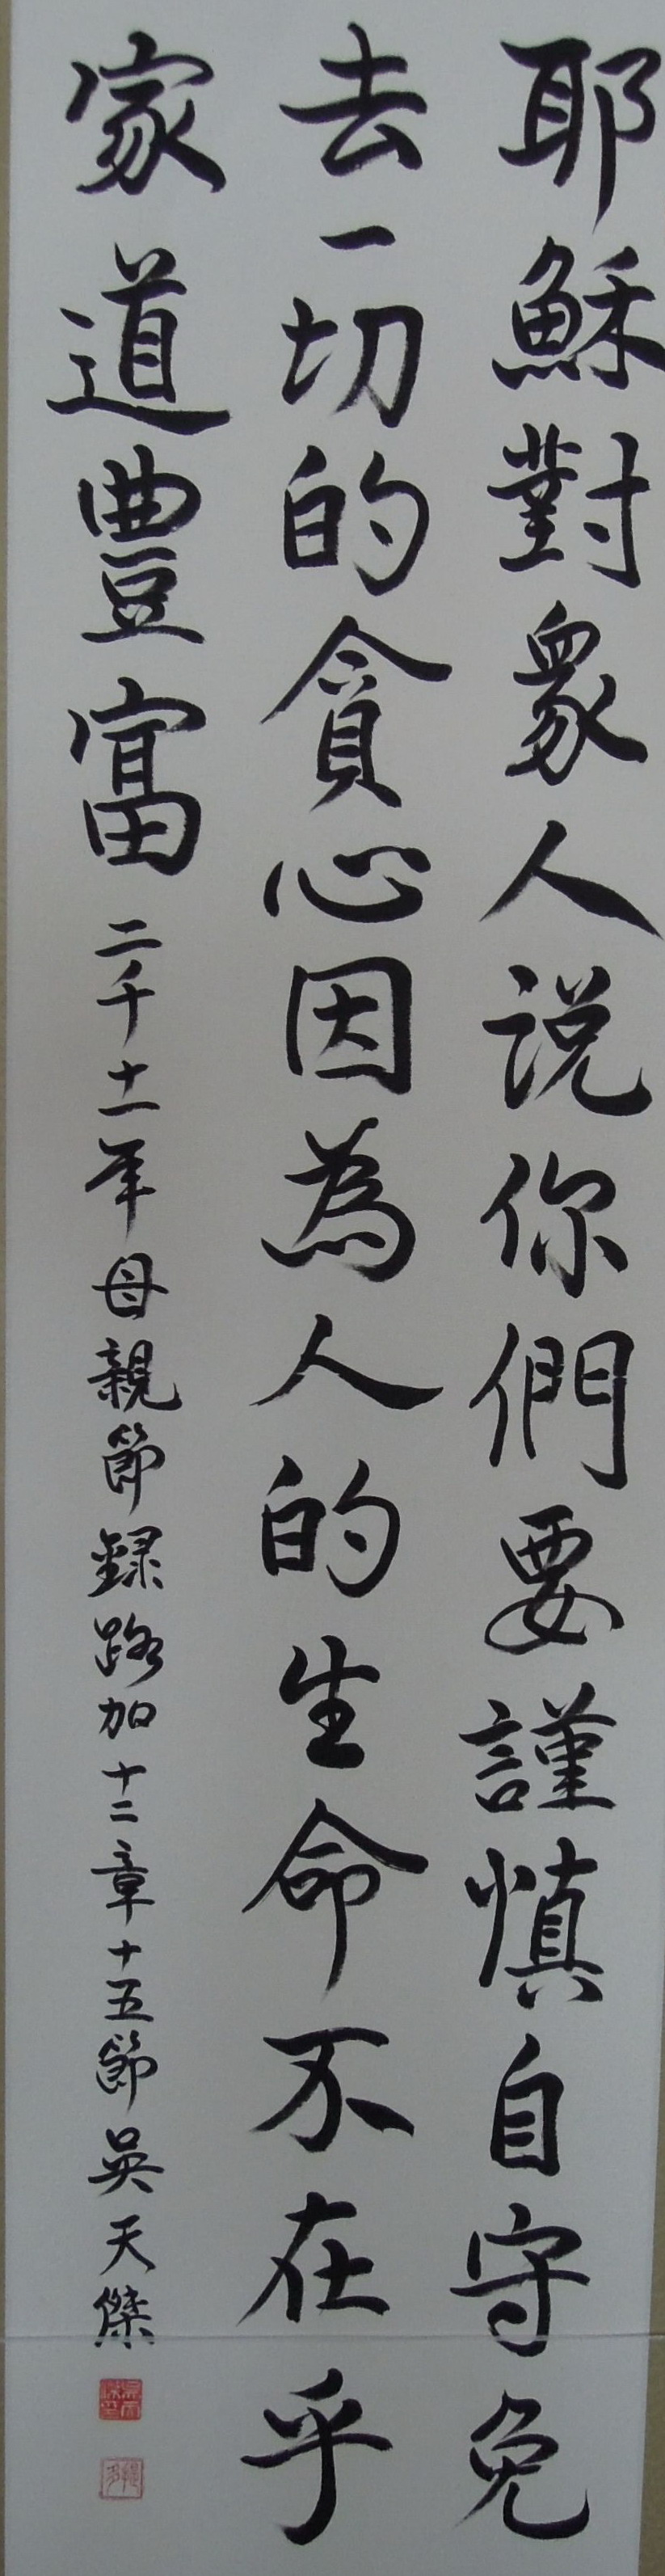 耶穌對衆人説你們要謹慎自守免
去一切的貪心因為人的生命不在乎
家道豐富二千十一年母親節録路加十二章十五節吳天傑